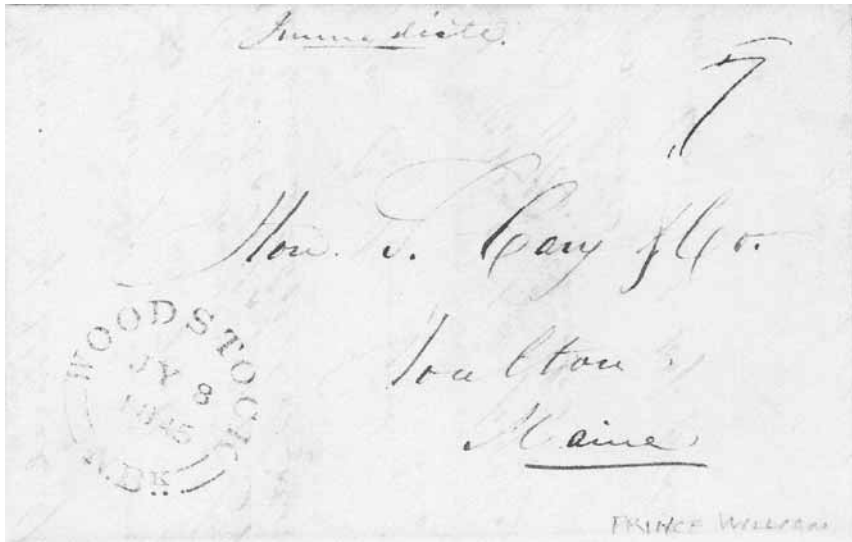 Immediate.
7
Hon. S. Cary & Co.
Houlton
Maine
WOODSTOCK
JY 8
1845
N.BK.
PRINCE WILLIAM